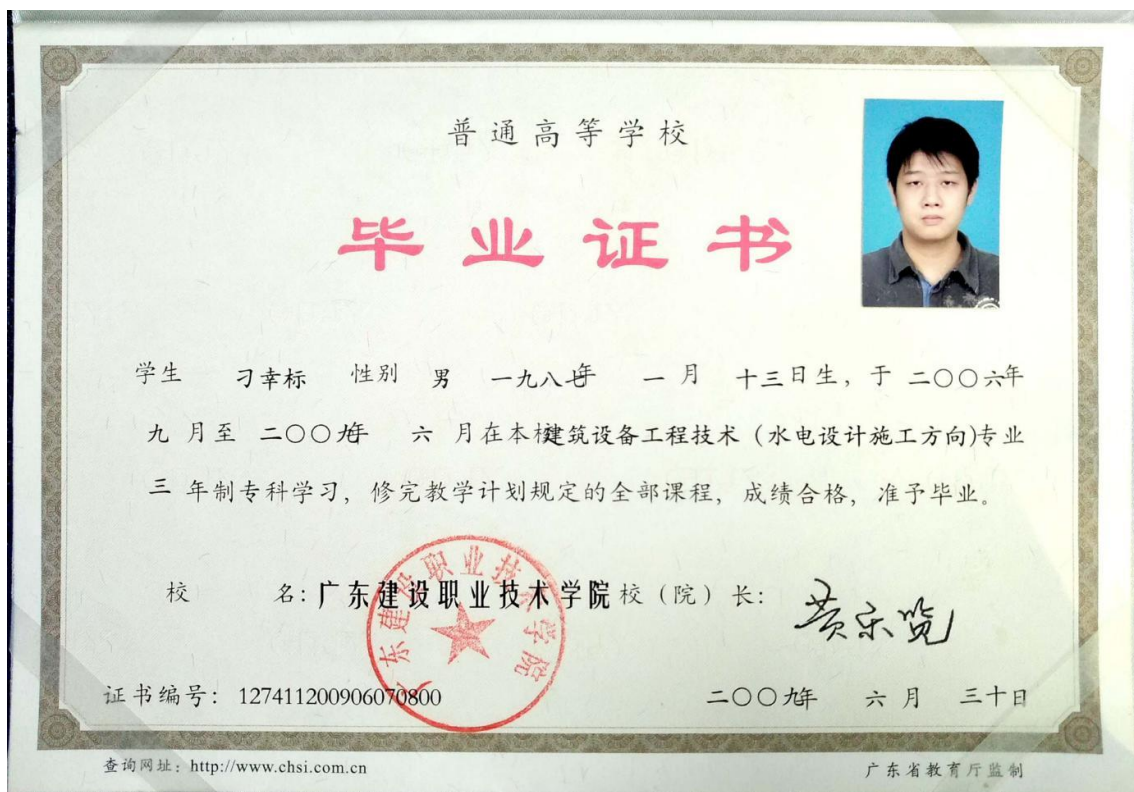 普通高等学校
毕业证书
学生 刁幸标 性别 男 一九八七年 一月 十三日生，于 二〇〇六年
九 月至 二〇〇九年 六 月在本校建筑设备工程技术（水电设计施工方向)专业
三 年制专科学习，修完教学计划规定的全部课程，成绩合格，准予毕业。
校 名：广东建设职业技术学院 校（院）长：
广东建设职业技术学院
证书编号： 127411200906070800 二〇〇九年 六 月 三十日
查询网址：http://www.chsi.com.cn 广东省教育厅监制